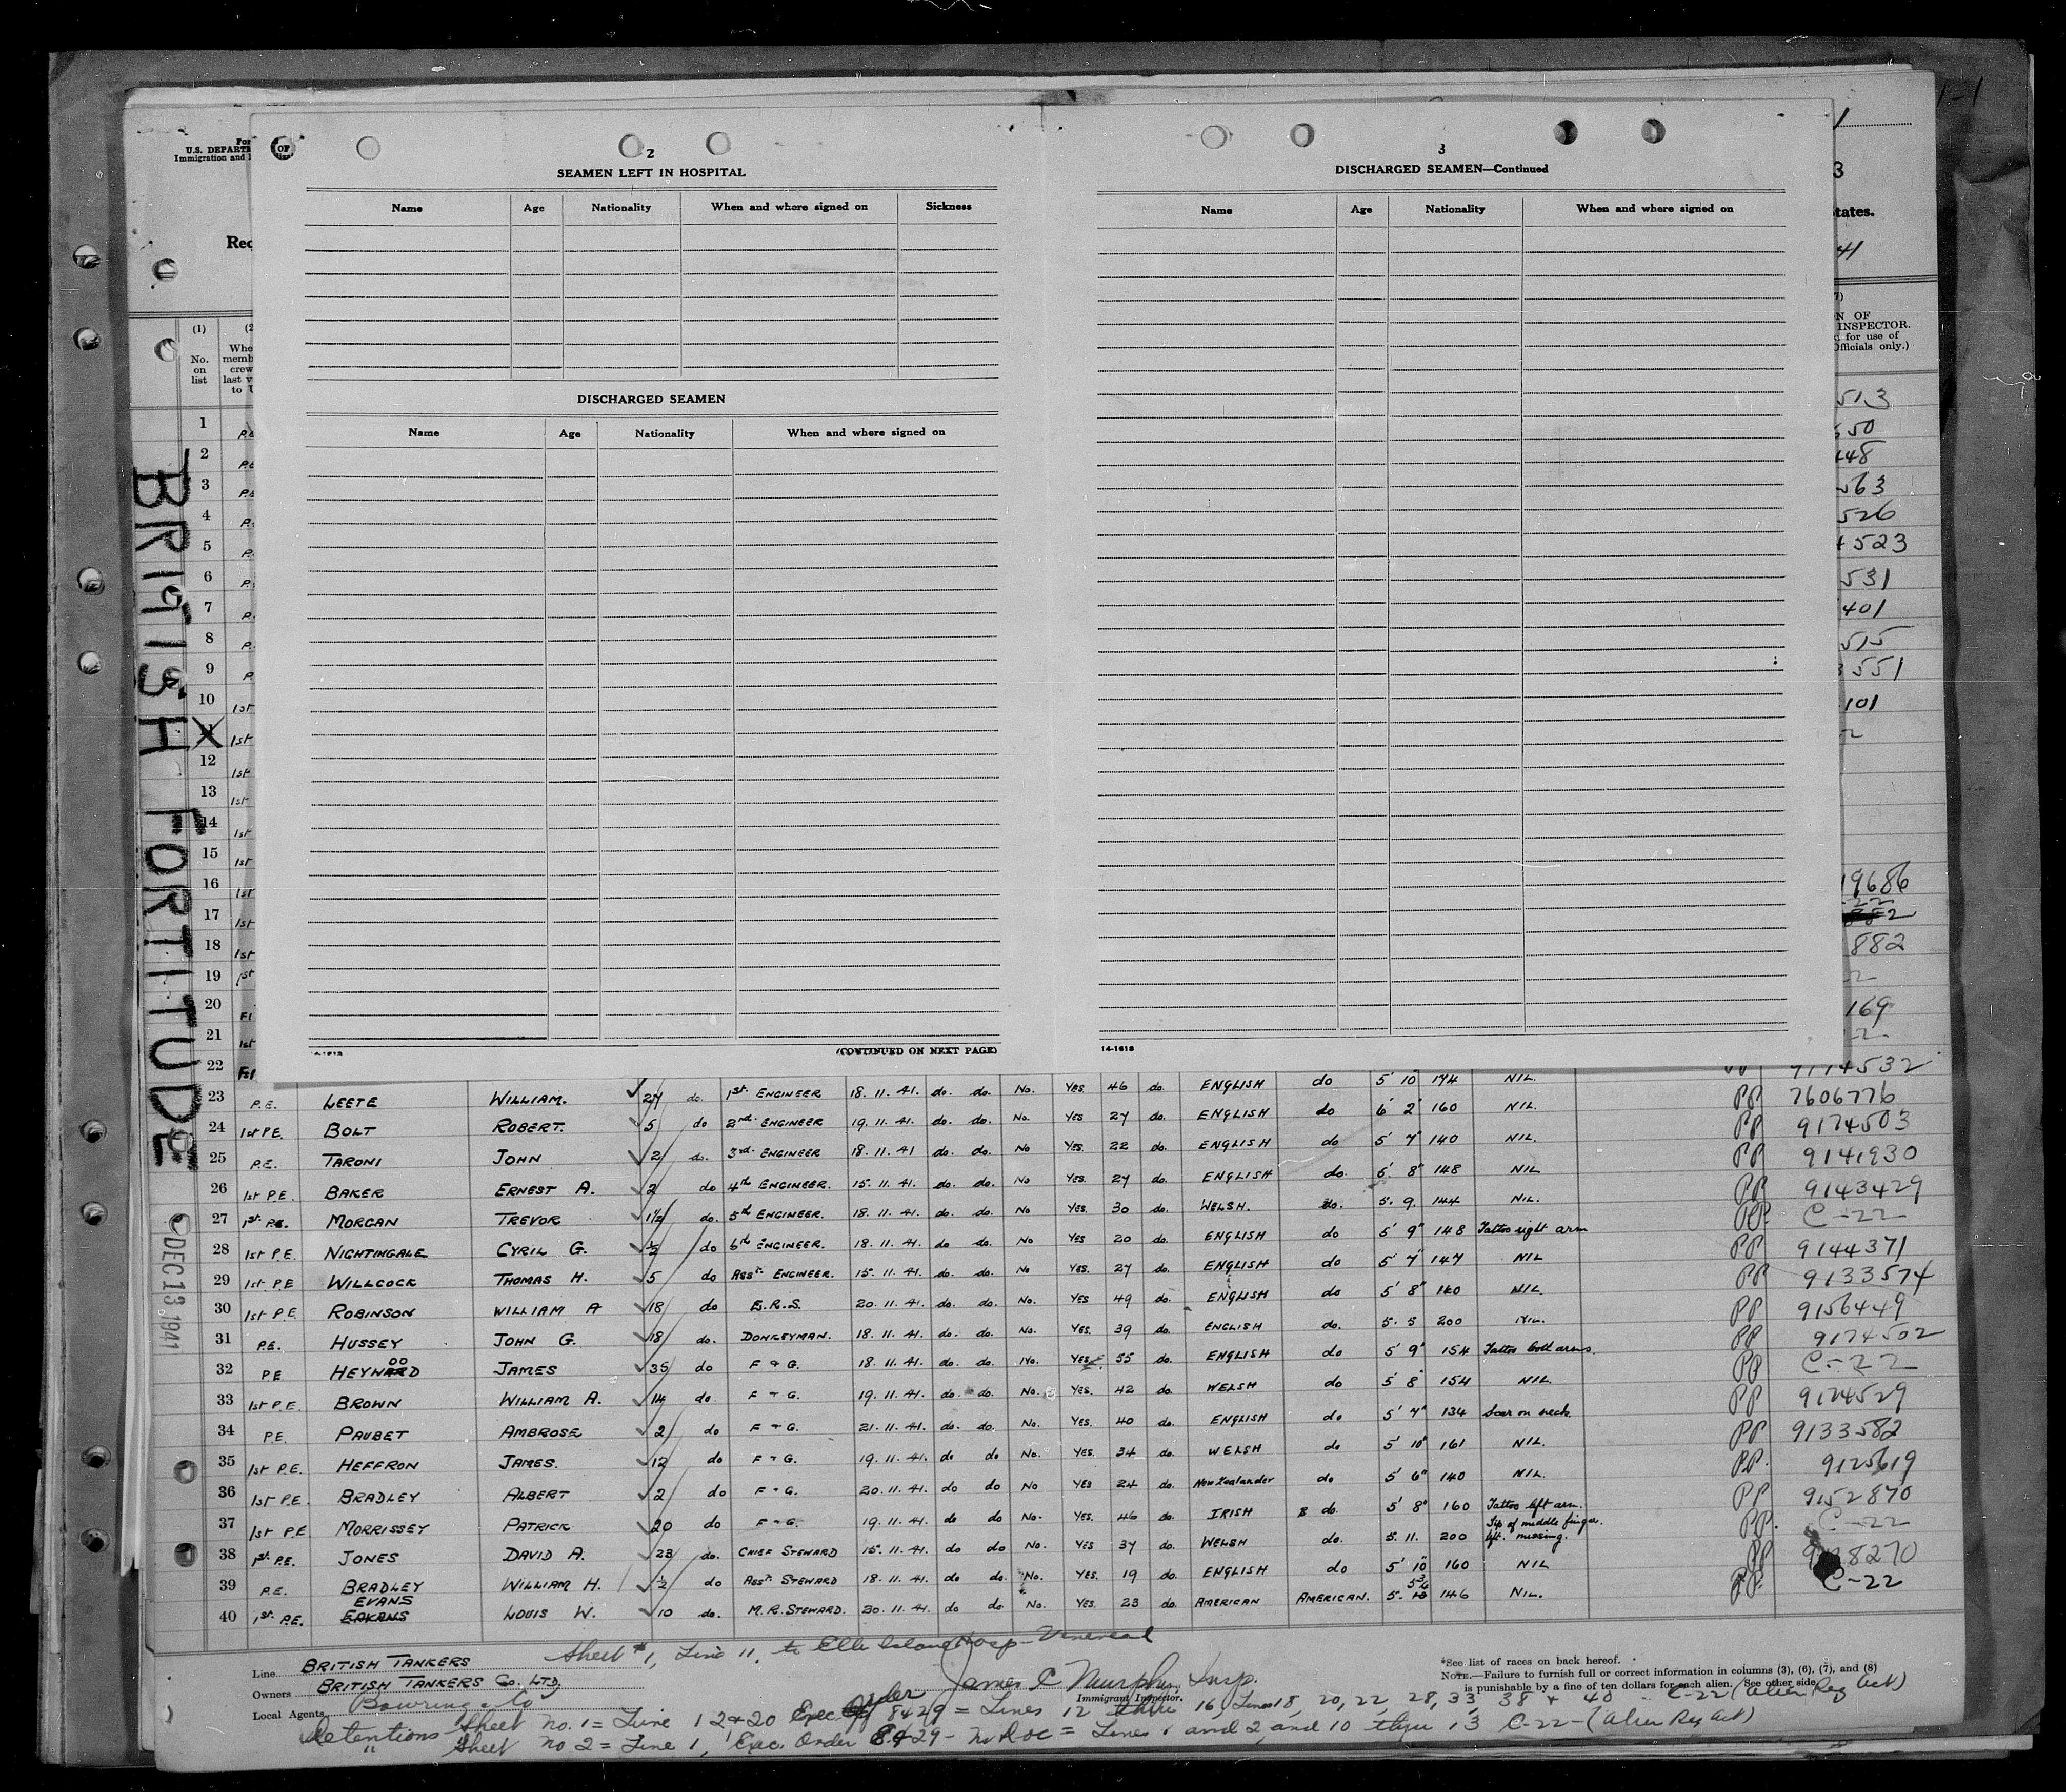 For
U.S. DEPART
Immigration and
OF
2
SEAMEN LEFT IN HOSPITAL
Name Age Nationality When and where signed on Sickness
DISCHARGED SEAMEN
Name Age Nationality When and where signed on
(CONTINUED ON NEXT PAGE)
3
DISCHARGED SEAMEN—Continued
Name Age Nationality When and where signed on
14-1618
3
tates.
41
N OF
INSPECTOR.
for use of
Officials only.)
Rec
(1)
No.
on
list
Whe
memb
crew
last v
to U
BRITISH FORTITUDE
DEC 13 1941
1
2
3
4
5
6
7
8
9
10 1st
11 1st
12 1st
13 1st
14 1st
15 1st
16 1st
17 1st
18 1st
19 1st
20
21 1st
22
513
50
48
563
526
523
531
401
515
551
101
19686
882
169
9174532
1st ENGINEER 18.11.41. do. do. No. YES 46 do. ENGLISH do 5' 10" 174 NIL.
23 P.E. LEETE WILLIAM. 27 do. 2nd ENGINEER 19.11.41. do. do. No. YES 27 do. ENGLISH do 6' 2" 160 NIL. PP 7606776
24 1st P.E. BOLT ROBERT. 5 do 3rd ENGINEER 18.11.41 do. do. No YES. 22 do. ENGLISH do 5' 7" 140 NIL. PP 9174503
25 P.E. TARONI JOHN 2 do. 4th ENGINEER. 15.11.41. do. do. No YES. 27 do. ENGLISH do. 5' 8" 148 NIL PP 9141930
26 1st P.E. BAKER ERNEST A. 2 do 5th ENGINEER. 18.11.41. do. do. No YES. 30 do. WELSH. do. 5. 9. 144 NIL. PP 9143429
27 1st P.E. MORGAN TREVOR 1½ do. 6th ENGINEER. 18.11.41. do do. No YES 20 do. ENGLISH do 5' 9" 148 Tattoo right arm PP C-22
28 1st P.E. NIGHTINGALE CYRIL G. ½ do Asst. ENGINEER. 15.11.41. do. do. No YES. 27 do. ENGLISH do 5' 7" 147 NIL PP 9144371
29 1st P.E WILLCOCK THOMAS H. 5 do E.R.S. 20.11.41. do. do. No. YES 49 do. ENGLISH do 5' 8" 140 NIL. PP 9133574
30 1st P.E ROBINSON WILLIAM A 18 do DONKEYMAN. 18.11.41. do. do. No. YES. 39 do. ENGLISH do. 5. 5 200 NIL. PP 9156449
31 P.E. HUSSEY JOHN G. 18 do. F & G. 18.11.41. do. do. No. YES. 55 do. ENGLISH do 5' 9" 154 Tattoo both arms. PP 9174502
32 PE HEYWOOD JAMES 35 do F & G. 19.11.41. do. do. No. YES. 42 do. WELSH do 5' 8" 154 NIL. PP C-22
33 1st P.E. BROWN WILLIAM A. 14 do. F & G. 21.11.41. do. do. No. YES. 40 do. ENGLISH do 5' 7" 134 Scar on neck. PP 9174529
34 P.E. PAUBET AMBROSE 2 do F & G. 19.11.41. do do No. YES. 34 do. WELSH do 5' 10" 161 NIL. PP 9133582
35 1st P.E. HEFFRON JAMES. 12 do F & G. 20.11.41. do do No YES 24 do. New Zealander do 5' 6" 140 NIL. PP. 9125619
36 1st P.E. BRADLEY ALBERT 2 do F & G. 19.11.41. do do No. YES. 46 do. IRISH do. 5' 8" 160 Tattoo left arm. PP 9152870
37 1st P.E MORRISSEY PATRICK 20 do CHIEF STEWARD 15.11.41. do do No. YES 37 do. WELSH do. 5. 11. 200 Tip of middle finger left missing. PP. C-22
38 1st P.E. JONES DAVID A. 23 do. Asst. STEWARD 18.11.41. do do. No. YES. 19 do. ENGLISH do 5' 10" 160 NIL PP 8270
39 P.E. BRADLEY WILLIAM H. ½ do M.R. STEWARD. 20.11.41. do do. No. YES. 23 do. AMERICAN AMERICAN. 5. 146 NIL. PP. C-22
40 1st. P.E. EVANS LOUIS W. 10 do.
Sheet #1, Line 11, to Ellis Island Hosp - Venereal
Line BRITISH TANKERS
Owners BRITISH TANKERS Co. LTD.
Local Agents Bowring & Co
James C Murphy Insp.
Immigrant Inspector.
*See list of races on back hereof.
NOTE.—Failure to furnish full or correct information in columns (3), (6), (7), and (8)
is punishable by a fine of ten dollars for each alien. See other side.
Detentions Sheet No. 1 = Line 1 2 & 20 Exec Order 8429 = Lines 12 thru 16, Lines 18, 20, 22, 28, 33, 38 & 40 - C-22 (Alien Reg Act)
" Sheet No 2 = Line 1, Exec. Order 8429 - no Doc = Lines 1 and 2, and 10 thru 13 C-22 - (Alien Reg Act)